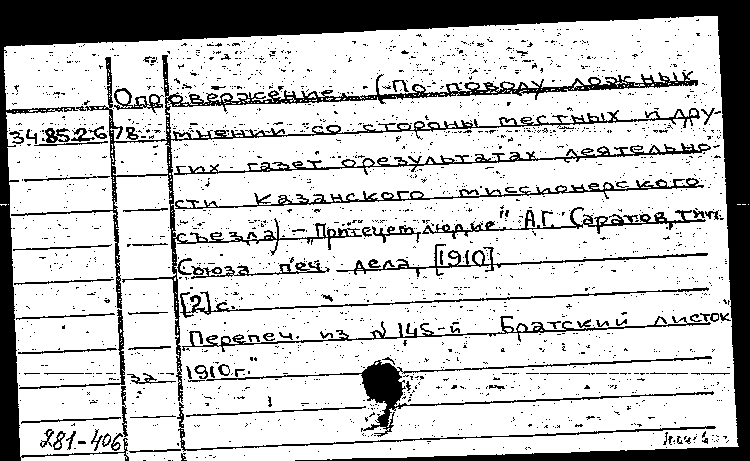 Опровержение. (По поводу ложных
34.85.2.6 78. мнений со стороны местных и дру-
гих газет о результатах деятельно-
сти Казанского миссионерского
съезда) – „Притецем, людие." А.Г. Саратов, тип.
Союза печ. дела, [1910].
[2] с.
„Перепеч. из №145-й „Братский листок"
1910г."
281-406